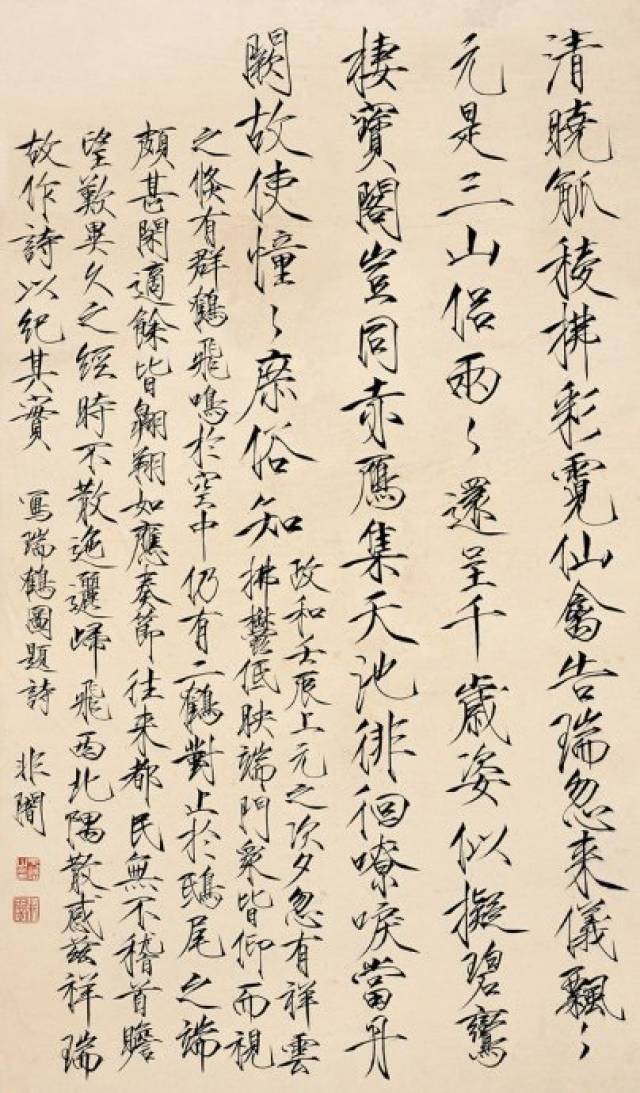 清曉觚稜拂彩霓仙禽告瑞忽来儀飄〻
元是三山侣兩〻還呈千歲姿似擬碧鸞
棲寶閣豈同赤鴈集天池徘徊嘹唳當丹
闕故使憧〻庶俗知
政和壬辰上元之次夕忽有祥雲
拂鬱低暎端門衆皆仰而視
之倏有群鶴飛鳴於空中仍有二鶴對止於鴟尾之端
頗甚閑適餘皆翱翔如應奏節往来都民無不稽首瞻
望歎異久之經時不散迤邐歸飛西北隅散感兹祥瑞
故作詩以紀其實 寫瑞鶴圖題詩 非闇